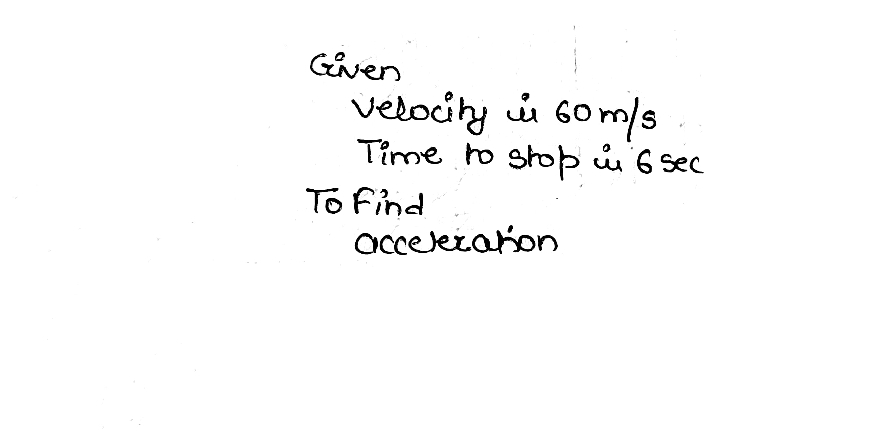 Given
Velocity is 60 m/s
Time to stop is 6 sec
To Find
acceleration